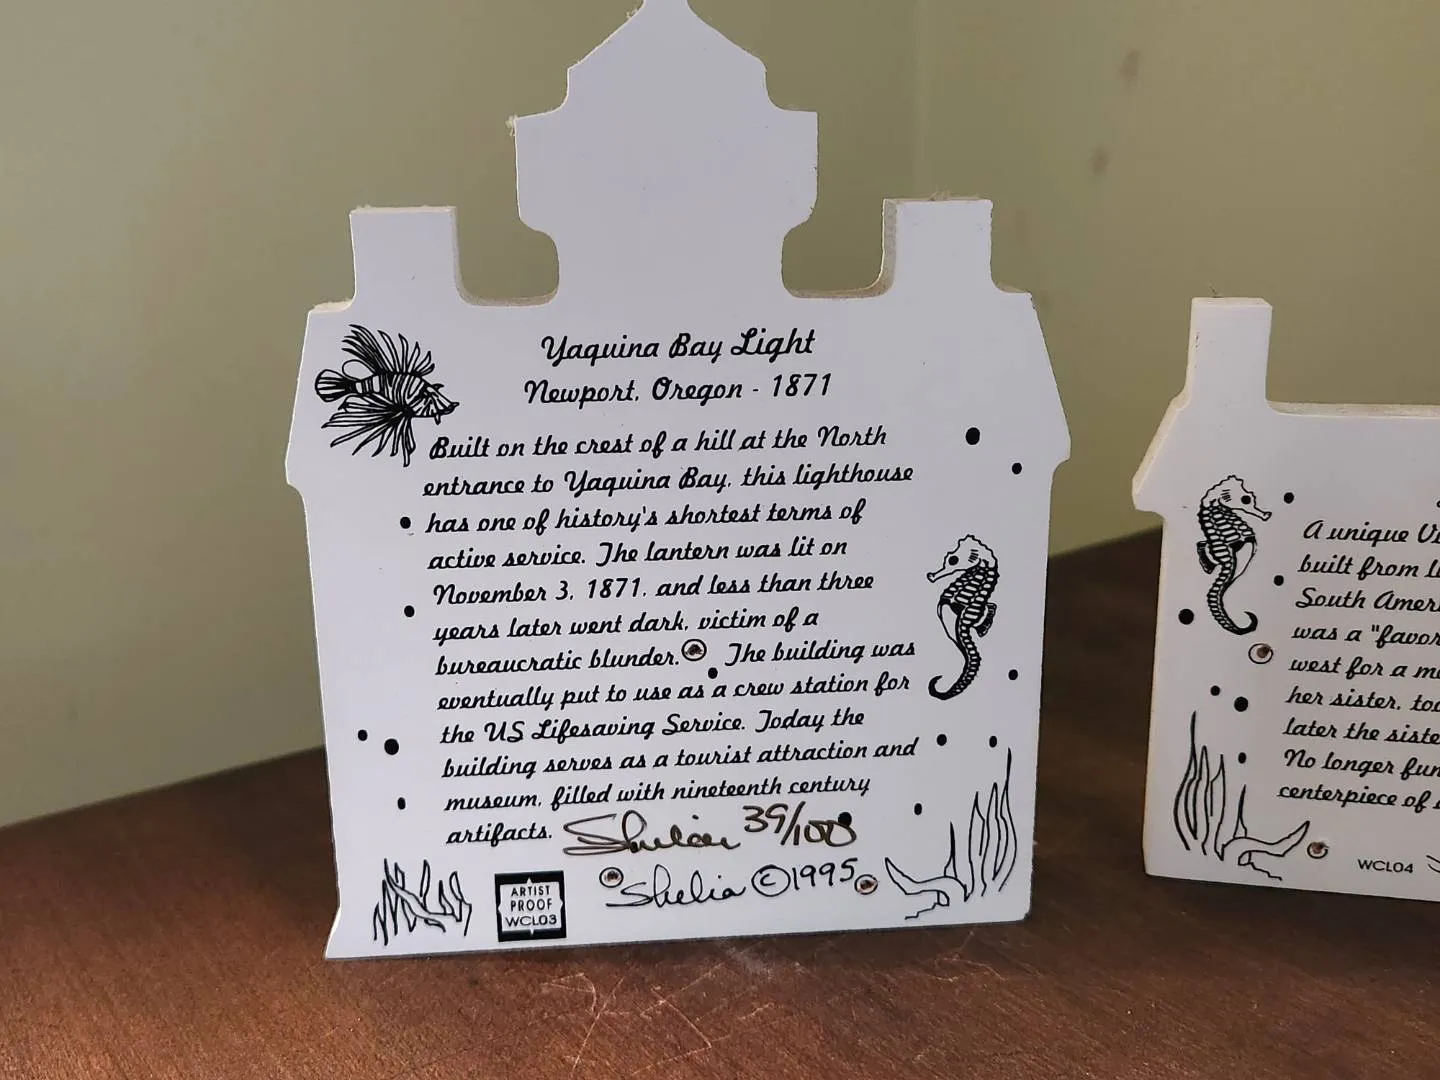 Yaquina Bay Light
Newport, Oregon - 1871
Built on the crest of a hill at the North
entrance to Yaquina Bay, this lighthouse
has one of history's shortest terms of
active service. The lantern was lit on
November 3, 1871, and less than three
years later went dark, victim of a
bureaucratic blunder. The building was
eventually put to use as a crew station for
the US Lifesaving Service. Today the
building serves as a tourist attraction and
museum, filled with nineteenth century
artifacts.
Shelia 39/100
ARTIST
PROOF
WCL03
Shelia ©1995
A unique
built from
South
was a
west for a
her sister,
later the
No longer
centerpiece of
WCL04